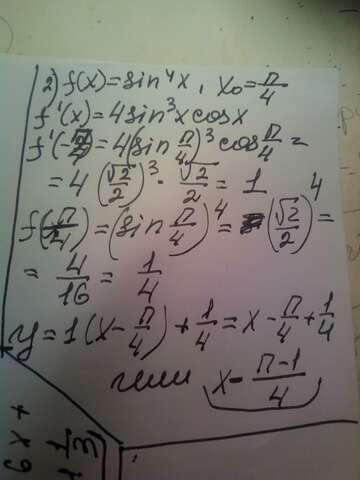 2) f(x)=sin⁴x, x₀=π/4
f'(x)=4sin³x cosx
f'(π/4)=4(sin π/4)³cos π/4=
=4(√2/2)³·√2/2=1
f(π/4)=(sin π/4)⁴=(√2/2)⁴=
=4/16=1/4
y=1(x-π/4)+1/4=x-π/4+1/4
или x-π-1/4
6x+